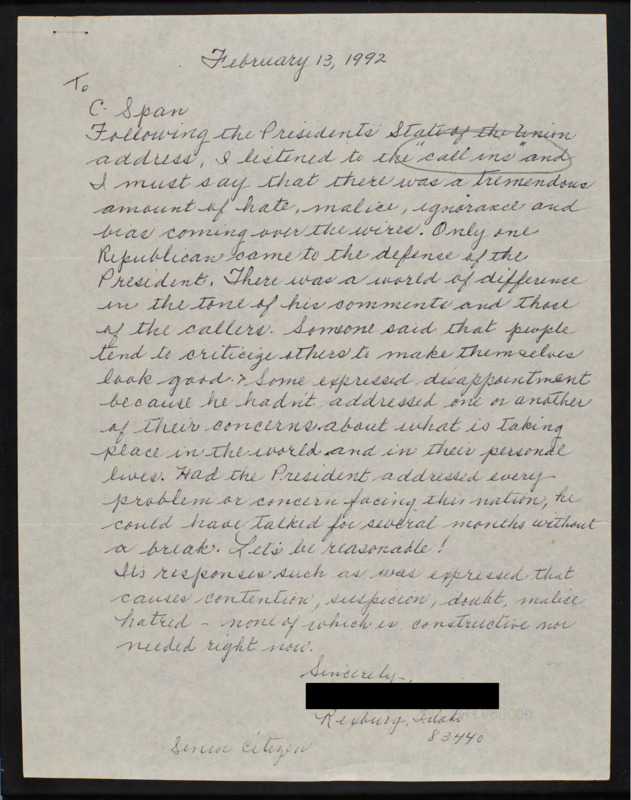 February 13, 1992
To
C. Span
Following the Presidents State of the Union
address, I listened to the "call ins" and
I must say that there was a tremendous
amount of hate, malice, ignorance and
bias coming over the wires. Only one
Republican came to the defense of the
President. There was a world of difference
in the tone of his comments and those
of the callers. Someone said that people
tend to criticize others to make themselves
look good.? Some expressed disappointment
because he hadn't addressed one or another
of their concerns about what is taking
place in the world and in their personal
lives. Had the President addressed every
problem or concern facing this nation, he
could have talked for several months without
a break. Let's be reasonable!
It's responses such as was expressed that
causes contention, suspicion, doubt, malice
hatred - none of which is constructive nor
needed right now.
Sincerely,
Rexburg, Idaho
83440
Senior Citizen